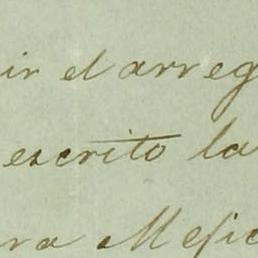 ir el arreg
escrito la
ra Mesic